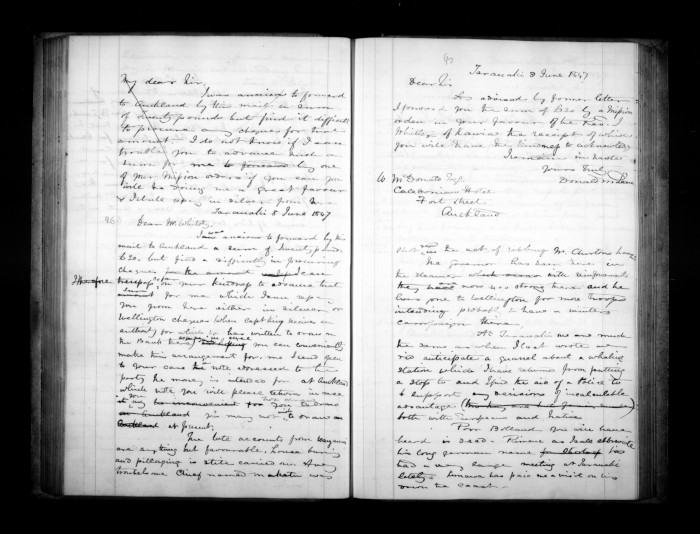 My dear Sir,
I was anxious to forward
to Auckland by this mail a sum
of twenty pounds but find it difficult
to procure any cheques for that
amount I do not know if I can
trouble you to advance such a
sum for me to forward by one
of your Mission orders if you can you
will be doing me a great favour
Taranaki 8 June 1847
Dear Mr. Whiteley,
I am anxious to forward by this
mail to Auckland a sum of twenty pounds
£20. but find a difficulty in procuring
cheques for the amount I can
Therefore trespass on your kindness to advance that
amount for me which I can
you from here either in silver or
Wellington cheques when Captain King receives an
authority for which he has written to draw on
the Bank there you can conveniently
make this arrangement for me I send you
to your care the note addressed to the
party the money is intended for at Auckland
which note you will please return in case
in Auckland
Auckland at present.
The late accounts from Wanganui
are anything but favourable, house burning
and pillaging is still carried on. A
troublesome Chief named was
Taranaki 8 June 1847
Dear Sir
As advised by former letter
I forward you the sum of £20 by a Mission
order in your favour of the Revd. J
Whiteley of Kawia the receipt of which
you will have the kindness to acknowledge
I remain in haste
Yours truly
Donald McLean
To McDonald Esq.
Caledonian Hotel
Fort Street
Auckland
shot in the act of robbing Mr. Churton's house
The Governor has been here in
the steamer with reinforcements
they are now strong there and he
has gone to Wellington for more troops
intending probably to have a winter's
campaign there.
At Taranaki we are much
the same as when I last wrote
anticipate a quarrel about a whaling
station which I have returned from putting
a stop to and I find the aid of a Police
to support my decisions of incalculable
advantage
both with Europeans and Natives
Poor Bolland you will have
heard is dead
his long german name has
had a very large meeting at Taranaki
lately. has paid us a visit on his
down the coast.